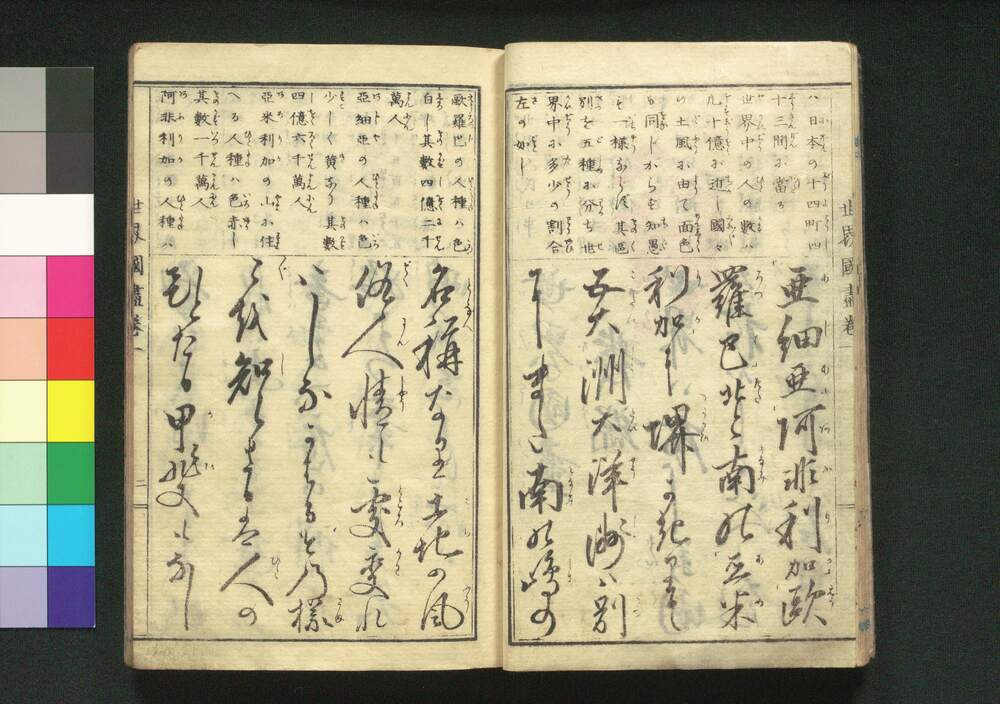 ハ日本の十四町四
十三間に當る
世界中の人の數ハ
九十億に近し國々
の土風に由て面色
も同じからず知愚
も一様ならず其區
別を五種に分ち世
界中に多少の割合
左の如し
亜細亜阿非利加歐
羅巴北と南の亜米
利加に堺かぎりて
五大洲大洋洲ハ別
にまた南の島の
世界國盡卷一
歐羅巴の人種ハ色
白し其數四億二千
萬人
亞細亞の人種ハ色
少しく黄なり其數
四億六千萬人
亞米利加の山に住
へる人種ハ色赤し
其數一千萬人
阿非利加の人種ハ
名稱なり土地の風
俗人情も處變れ
バしなかはるその様
々を知らざるハ人の
ひとたる甲斐もなし
世界國盡卷一
二